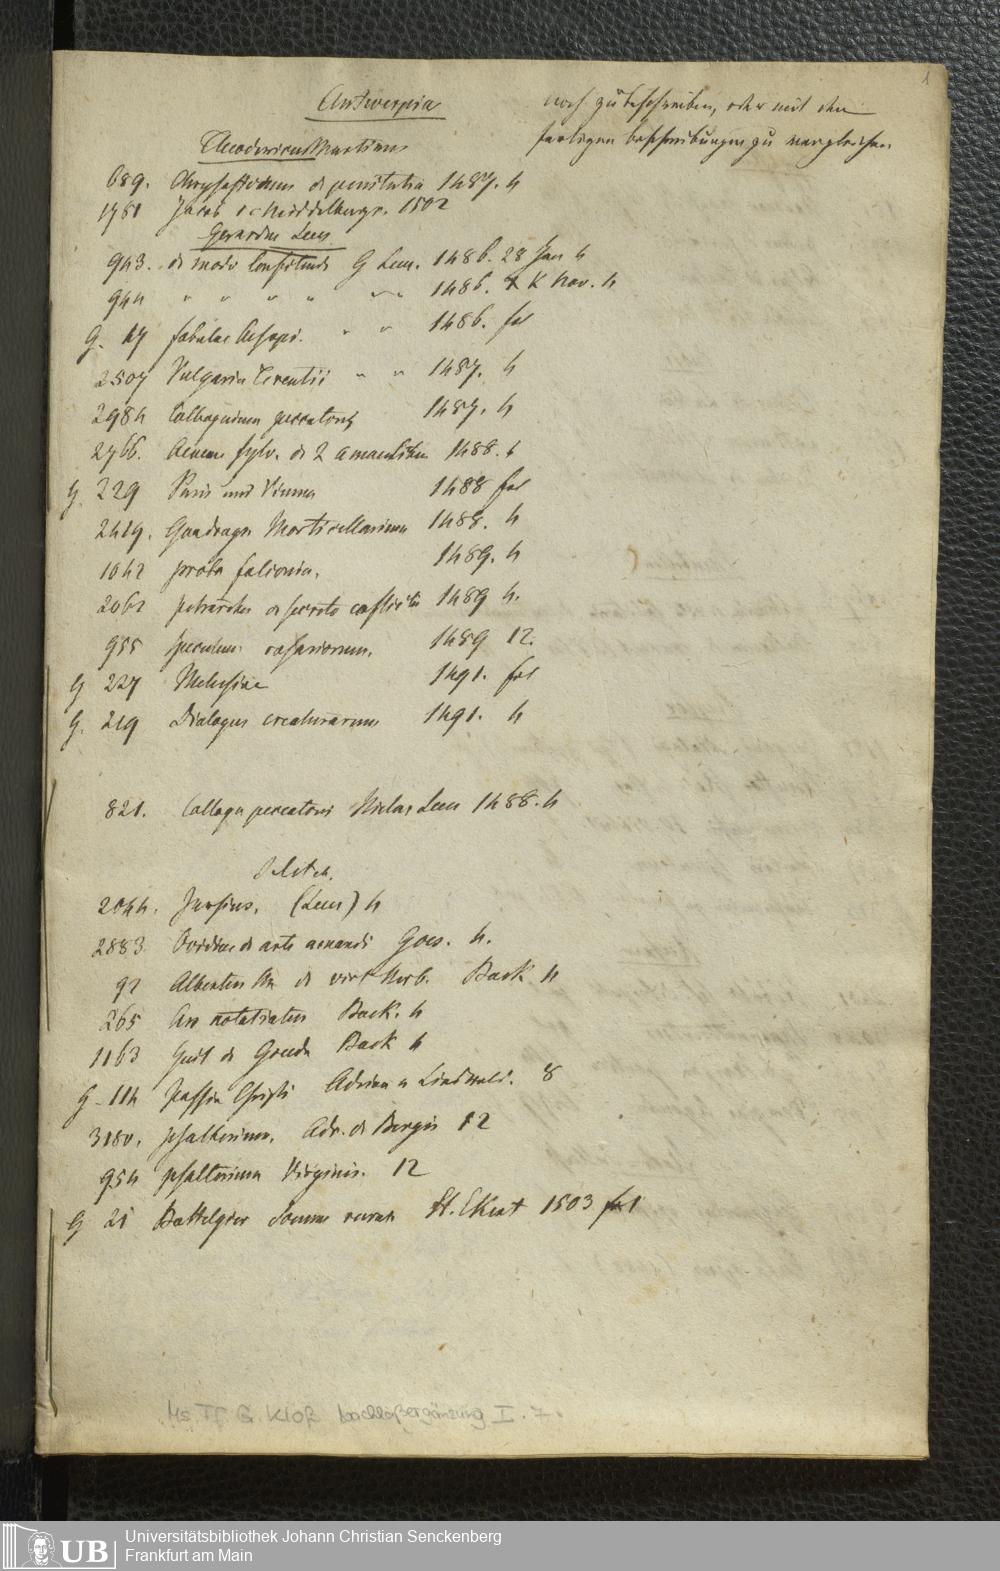 1
Antwerpia
noch zu beschreiben, oder mit den
fertigen beschreibungen zu vergleichen
Theodoricus Martinus
689. Chrysostomus de penitentia 1487. 4
1781 Jacob de Middelburgo. 1502
Gerardus Leeu
943. de modo confitendi G Leeu. 1486. 28 Jan 4
944 " " " " " 1486. K Nov. 4
G. 17 fabulae Aesopi. " " 1486. fol
2507 Vulgaria Terentii " " 1487. 4
2984 Colloquium peccatoris 1487. 4
2766. Aeneae sylv. de 2 amantibus 1488. 4
G. 229 Paris und Vienna 1488 fol
2419. Quadrag. Morticellarium 1488. 4
1042 proba falconia. 1489. 4
2062 petrarcha de secreto conflictu 1489 4.
955 speculum rosariorum. 1489 12.
G 227 Melusine 1491. fol
G. 219 Dialogus creaturarum 1491. 4
821. Colloqu peccatoris Niclas Leeu 1488. 4
Delich.
2044. (Leeu) 4
2883 Ovidius de arte amandi Goes. 4.
92 Albertus M. de virt herb. Back 4
265 Ars notariatus Back. 4
1163 Guil de Gouda Back 4
G. 114 passio Christi Adrian v Liesveld. 8
3180. psalterium. Adr. de Bergis 12
954 psalterium Virginis. 12
G 21 Somme rurael H. Ekert 1503 fol
Ms. Ff. G. Kloß Nachlaßergänzung I. 7.
UB
Universitätsbibliothek Johann Christian Senckenberg
Frankfurt am Main